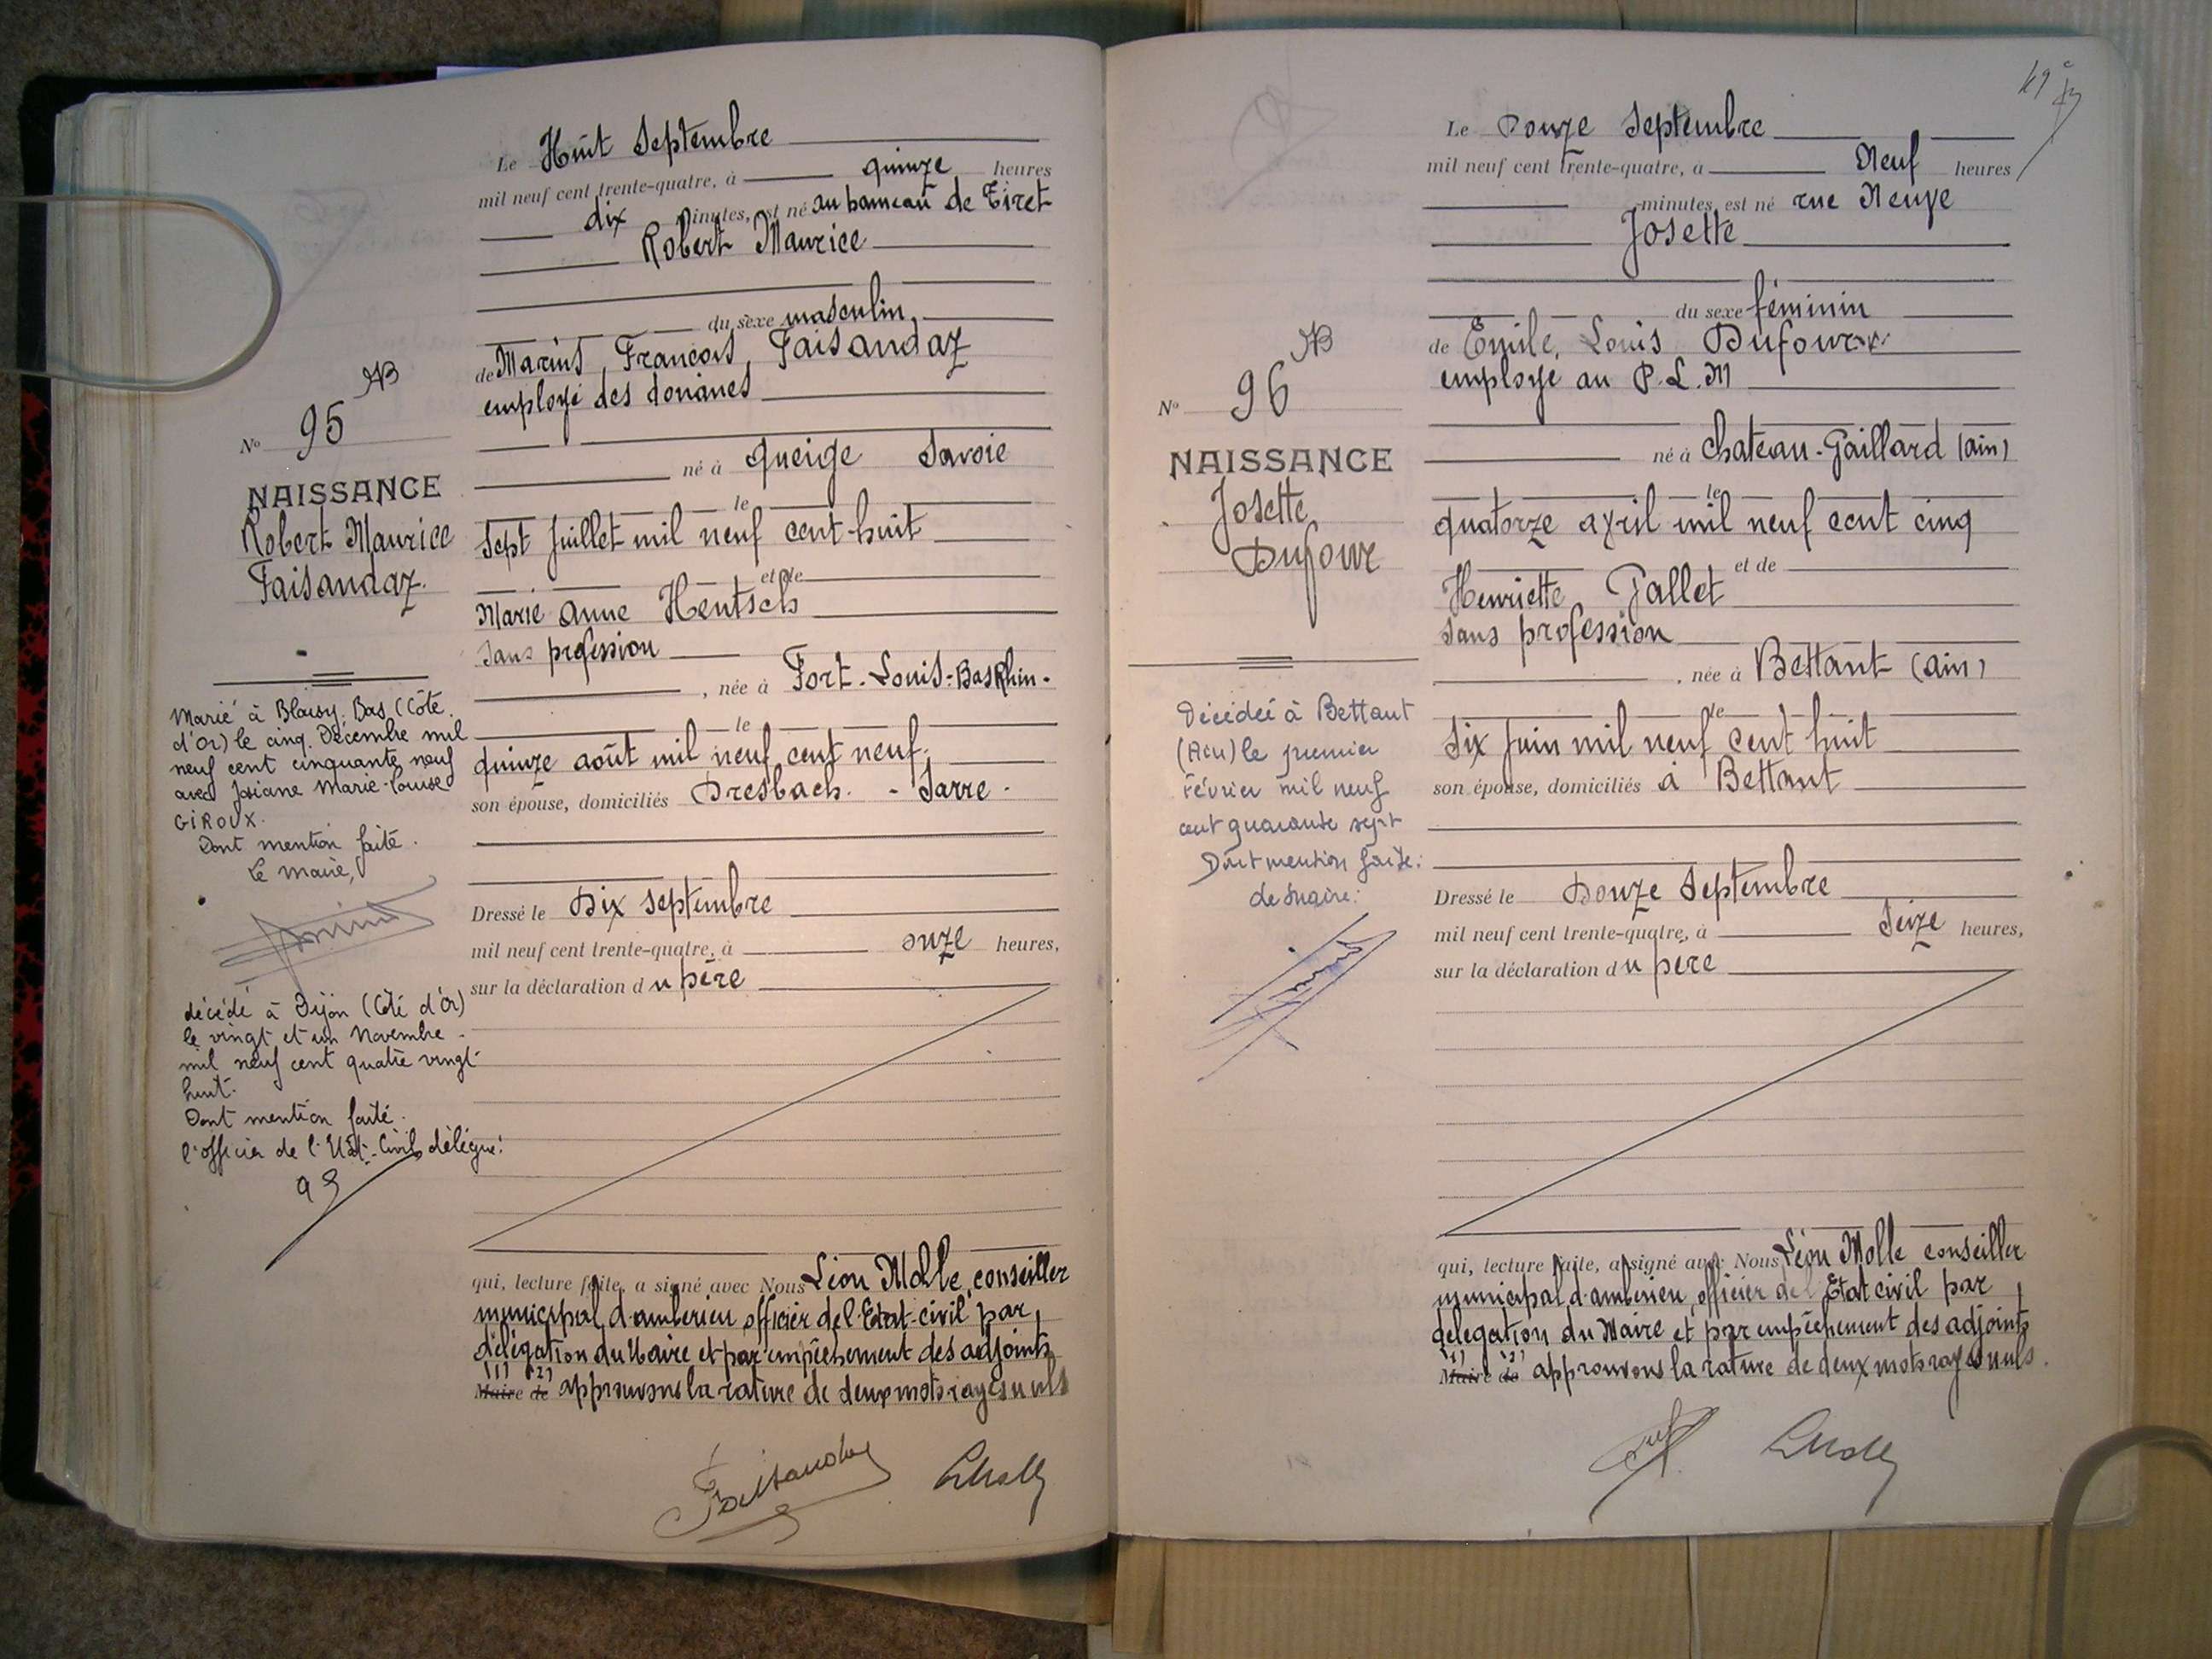 Le Huit Septembre
mil neuf cent trente-quatre, à quinze heures
dix minutes, est né au hameau de Tiret
Robert Maurice
du sexe masculin
de Marius, François, Faisandaz
employé des douanes
né à Queige Savoie
le
Sept Juillet mil neuf cent huit
et de
Marie Anne Hentsch
Sans profession
, née à Fort-Louis-Bas Rhin.
le
quinze août mil neuf cent neuf,
son épouse, domiciliés Dresbach. - Sarre.
Dressé le Dix Septembre
mil neuf cent trente-quatre, à onze heures,
sur la déclaration du père
qui, lecture faite, a signé avec Nous Léon Molle, conseiller
municipal d'ambérieu officier de l'Etat-civil par
délégation du Maire et par empêchement des adjoints
(1) (2)
Maire de approuvons la rature de deux mots rayés nuls
AB
No 95
NAISSANCE
Robert Maurice
Faisandaz.
Marié à Blaisy-Bas (Côte
d'Or) le cinq Décembre mil
neuf cent cinquante neuf
avec Josiane Marie-Louise
GIROUX.
Dont mention faite.
Le Maire,
décédé à Dijon (Côte d'Or)
le vingt et un Novembre
mil neuf cent quatre vingt
huit.
Dont mention faite.
l'officier de l'Etat-Civil délégué:
49e
Le Douze Septembre
mil neuf cent trente-quatre, à Neuf heures
minutes, est né rue Neuve
Josette
du sexe féminin
de Emile, Louis Dufour
employé au P.L.M
né à Chateau-Gaillard (ain)
le
quatorze avril mil neuf cent cinq
et de
Henriette Gallet
Sans profession
, née à Bettant (ain)
le
Six Juin mil neuf cent huit
son épouse, domiciliés à Bettant
Dressé le Douze Septembre
mil neuf cent trente-quatre, à Seize heures,
sur la déclaration du père
qui, lecture faite, a signé avec Nous Léon Molle conseiller
municipal d'ambérieu officier de l'Etat civil par
délégation du Maire et par empêchement des adjoints
(1) (2)
Maire de approuvons la rature de deux mots rayés nuls.
AB
No 96
NAISSANCE
Josette
Dufour
Décédée à Bettant
(Ain) le premier
février mil neuf
cent quarante sept
Dont mention faite:
Le Maire: